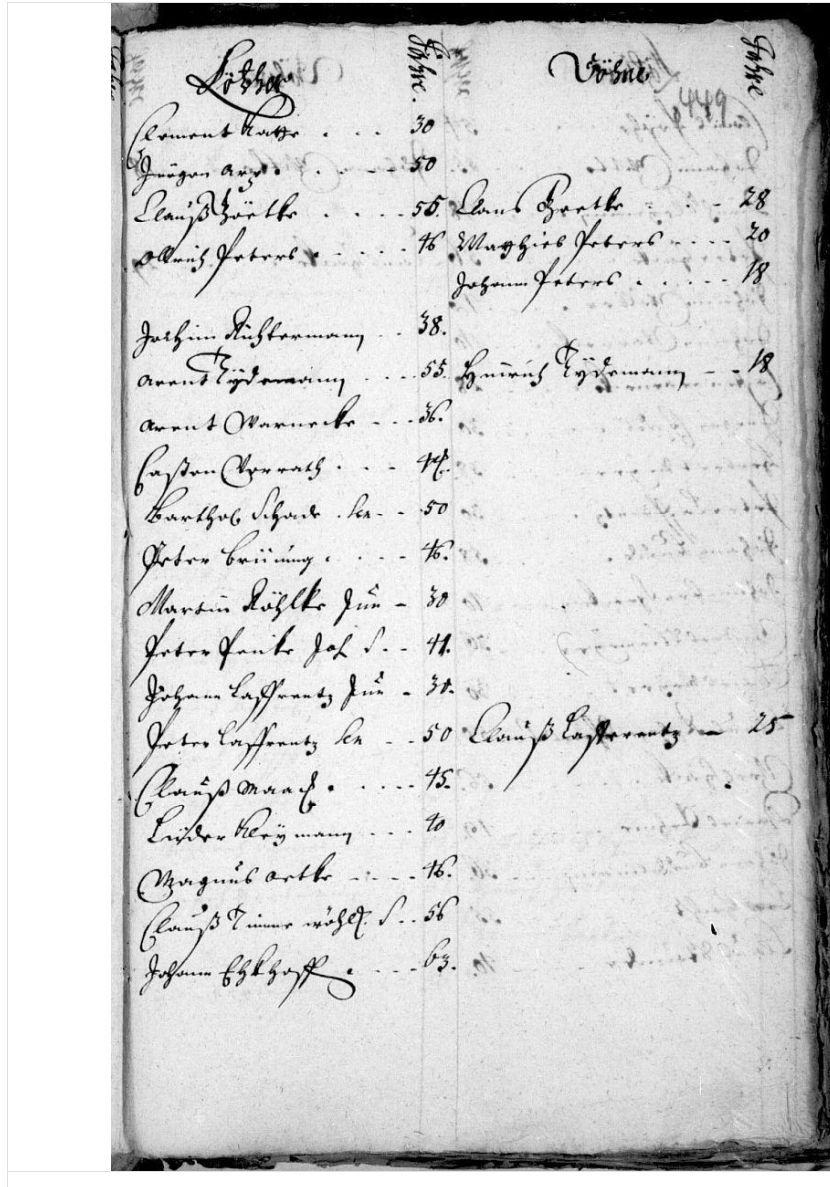 Jahre. Söhne Jahre
449
Clement 30
Jürgen Arp 50
Clauß 55. Clauß 28
Ollrich Peters 46 Matthies Peters 20
Johann Peters 18
Jochim Richtermann 38.
Arent Tydemann 55. Hinrich Tydemann 18
Arent Warnecke 36.
Casten Vorrath 44.
Barthol Schade Sen 50
Peter Brüning 46.
Martin Röhlke Jun 30
Peter Joh S. 41.
Johann Laffrentz Jun 30.
Peter Laffrentz Sen 50 Clauß Laffrentz 25
Clauß Maack 45.
Lüder Kleymann 40
Magnus Oetke 46.
Clauß Timme S. 56
Johann Ehkhoff 63.